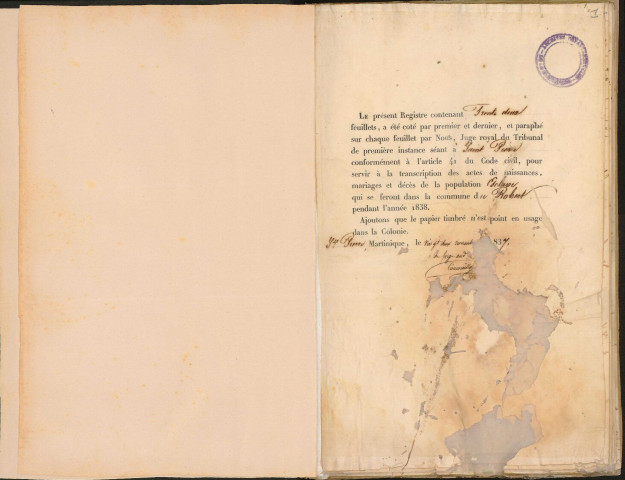 1
LE présent Registre contenant Trente deux
feuillets, a été coté par premier et dernier, et paraphé
sur chaque feuillet par Nous, Juge royal du Tribunal
de première instance séant à Saint Pierre
conformément à l'article 41 du Code civil, pour
servir à la transcription des actes de naissances,
mariages et décès de la population Esclave
qui se feront dans la commune du Robert
pendant l'année 1838.
Ajoutons que le papier timbré n'est point en usage
dans la Colonie.
St Pierre Martinique, le 1837.
le juge